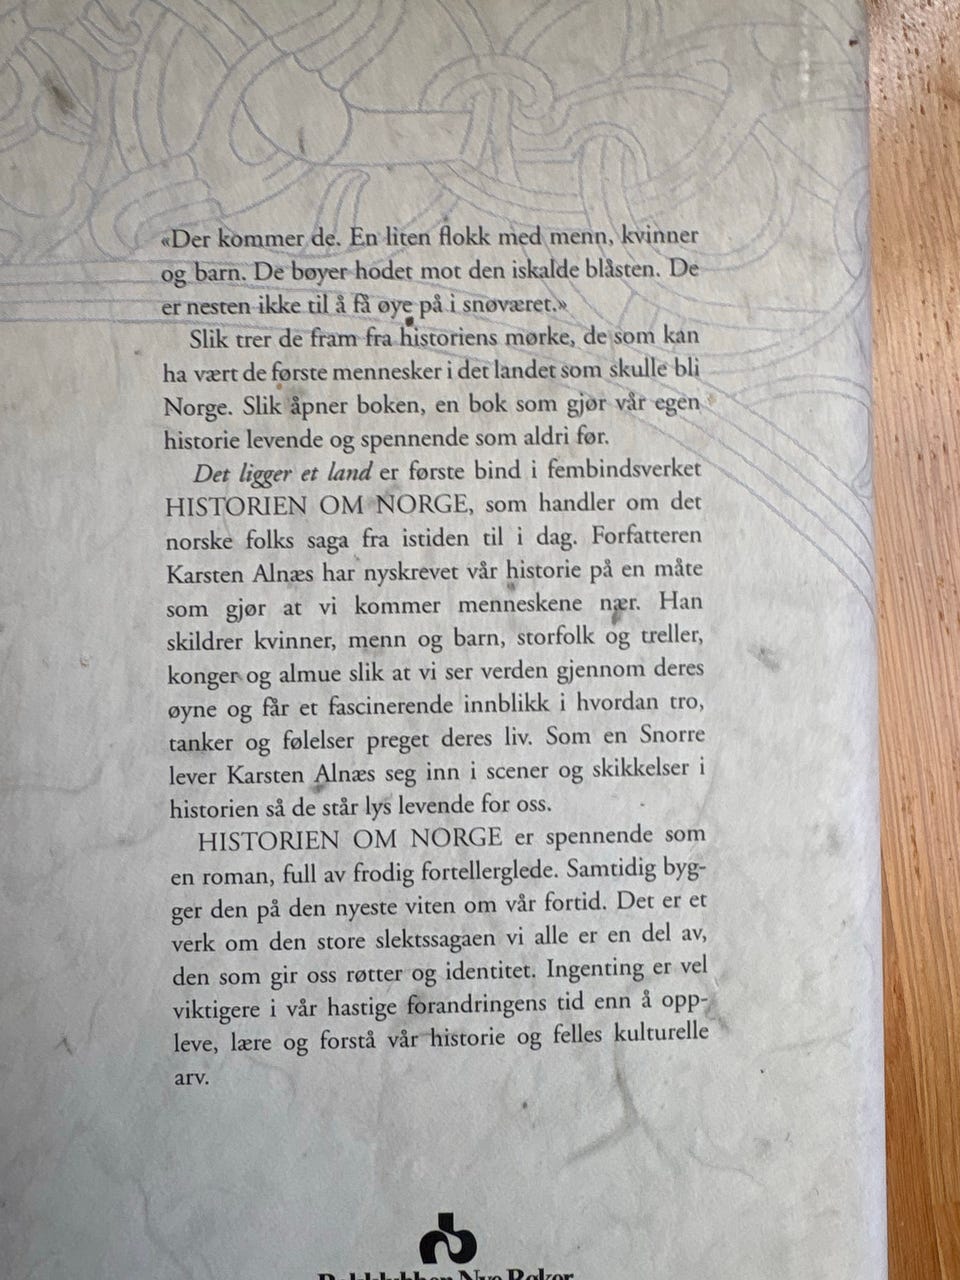 «Der kommer de. En liten flokk med menn, kvinner
og barn. De bøyer hodet mot den iskalde blåsten. De
er nesten ikke til å få øye på i snøværet.»
Slik trer de fram fra historiens mørke, de som kan
ha vært de første mennesker i det landet som skulle bli
Norge. Slik åpner boken, en bok som gjør vår egen
historie levende og spennende som aldri før.
Det ligger et land er første bind i fembindsverket
HISTORIEN OM NORGE, som handler om det
norske folks saga fra istiden til i dag. Forfatteren
Karsten Alnæs har nyskrevet vår historie på en måte
som gjør at vi kommer menneskene nær. Han
skildrer kvinner, menn og barn, storfolk og treller,
konger og almue slik at vi ser verden gjennom deres
øyne og får et fascinerende innblikk i hvordan tro,
tanker og følelser preget deres liv. Som en Snorre
lever Karsten Alnæs seg inn i scener og skikkelser i
historien så de står lys levende for oss.
HISTORIEN OM NORGE er spennende som
en roman, full av frodig fortellerglede. Samtidig byg-
ger den på den nyeste viten om vår fortid. Det er et
verk om den store slektssagaen vi alle er en del av,
den som gir oss røtter og identitet. Ingenting er vel
viktigere i vår hastige forandringens tid enn å opp-
leve, lære og forstå vår historie og felles kulturelle
arv.
Bokklubben Nye Bøker